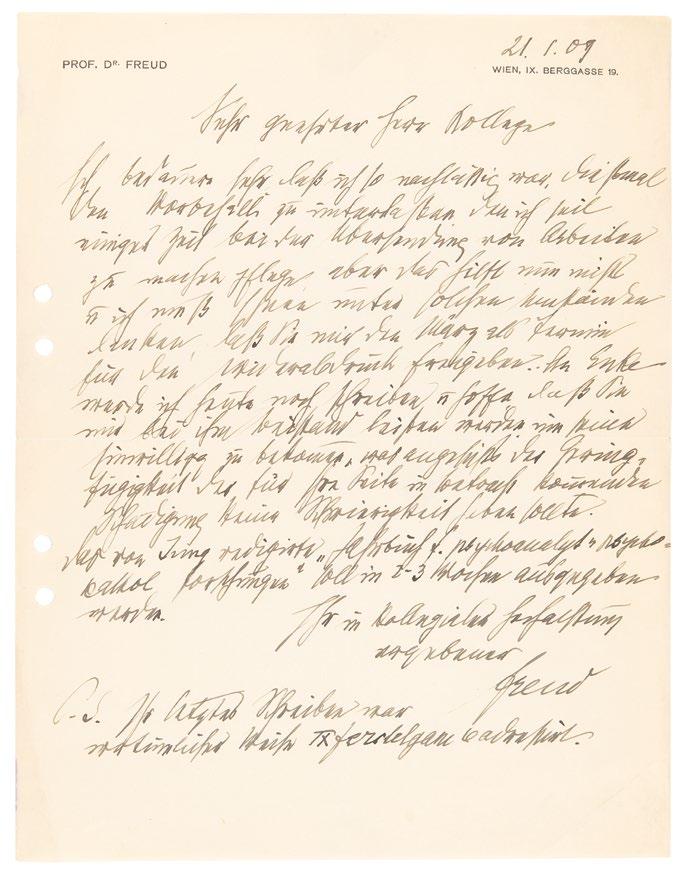 21. 1. 09
PROF. DR. FREUD
WIEN, IX. BERGGASSE 19.
Sehr geehrter Herr Kollege
Ich bedauere sehr daß ich so nachlässig war, diesmal
den Vorbehalt zu unterlassen den ich seit
einiger Zeit bei der Übersendung von Arbeiten
zu machen pflege, aber das hilft nun nicht
u ich muß Ihnen unter solchen Umständen
danken, daß Sie mir den März als Termin
für den Wiederabdruck freigeben. An Enke
werde ich heute noch schreiben u hoffe daß Sie
mir bei ihm Beistand leisten werden um seine
Einwilligg zu bekommen, was angesichts der Gering-
fügigkeit der für Ihre Seite in Betracht kommenden
Schädigung keine Schwierigkeit haben sollte.
Das von Jung redigirte „Jahrbuch f. psychoanalyt u psycho-
pathol Forschungen" soll in 2-3 Wochen ausgegeben
werden.
Ihr in kollegialer Hochachtung
ergebener
Freud
P.S. Ihr letztes Schreiben war
irrtümlicher Weise IX adressirt.